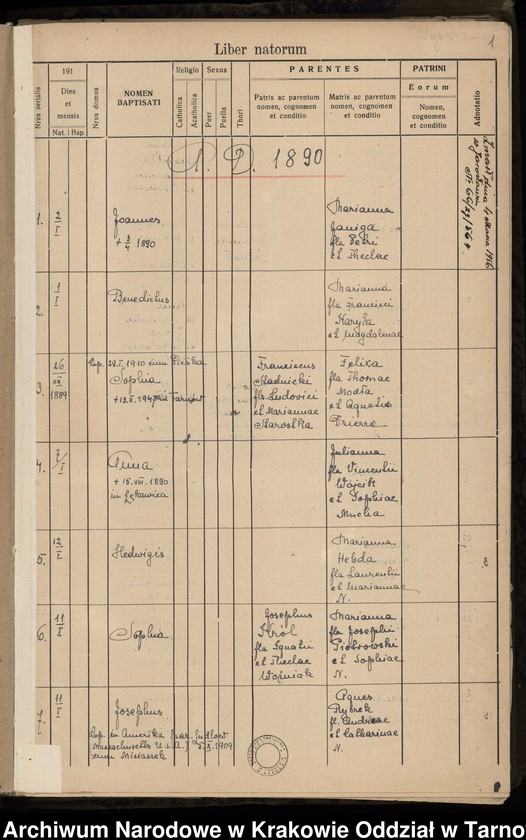 1
Liber natorum
Nrus serialis
191
Dies
et
mensis
Nat.
Bap.
Nrus domus
NOMEN
BAPTISATI
Religio
Catholica
Acatholica
Sexus
Puer
Puella
Thori
PARENTES
Patris ac parentum
nomen, cognomen
et conditio
Matris ac parentum
nomen, cognomen
et conditio
PATRINI
Eorum
Nomen,
cognomen
et conditio
Adnotatio
A. D. 1890
1.
2
I
Joannes
+ 3/4 1890
Marianna
Janiga
fla Petri
et Theclae
2.
1
I
Benedictus
Marianna
fla Francisci
Karyła
et Magdalenae
3.
26
XII
1889
Cop. 29.I.1910 cum
Sophia
Franciscus
Sładnicki
fls. Ludovici
et Mariannae
Starostka
Felixa
fla Thomae
Modła
et Agnetis
4.
7/I
Anna
+ 15.VIII.1890
in Łękawica
Julianna
fla Vincentii
Wójcik
et Sophiae
5.
12
I
Hedwigis
Marianna
Hebda
fla Laurentii
et Mariannae
N.
6.
11
I
Sophia
Josephus
Król
fls Ignatii
et Theclae
Woźniak
Marianna
fla Josephi
Piotrowski
et Sophiae
N.
7.
11
I
Josephus
Cop. in Amerika (par. Ludlow
Massachusetts U.S.A.) 5.X.1909
cum
Agnes
Rybek
fl. Andreae
et Catharinae
N.
Archiwum Narodowe w Krakowie Oddział w Tarno